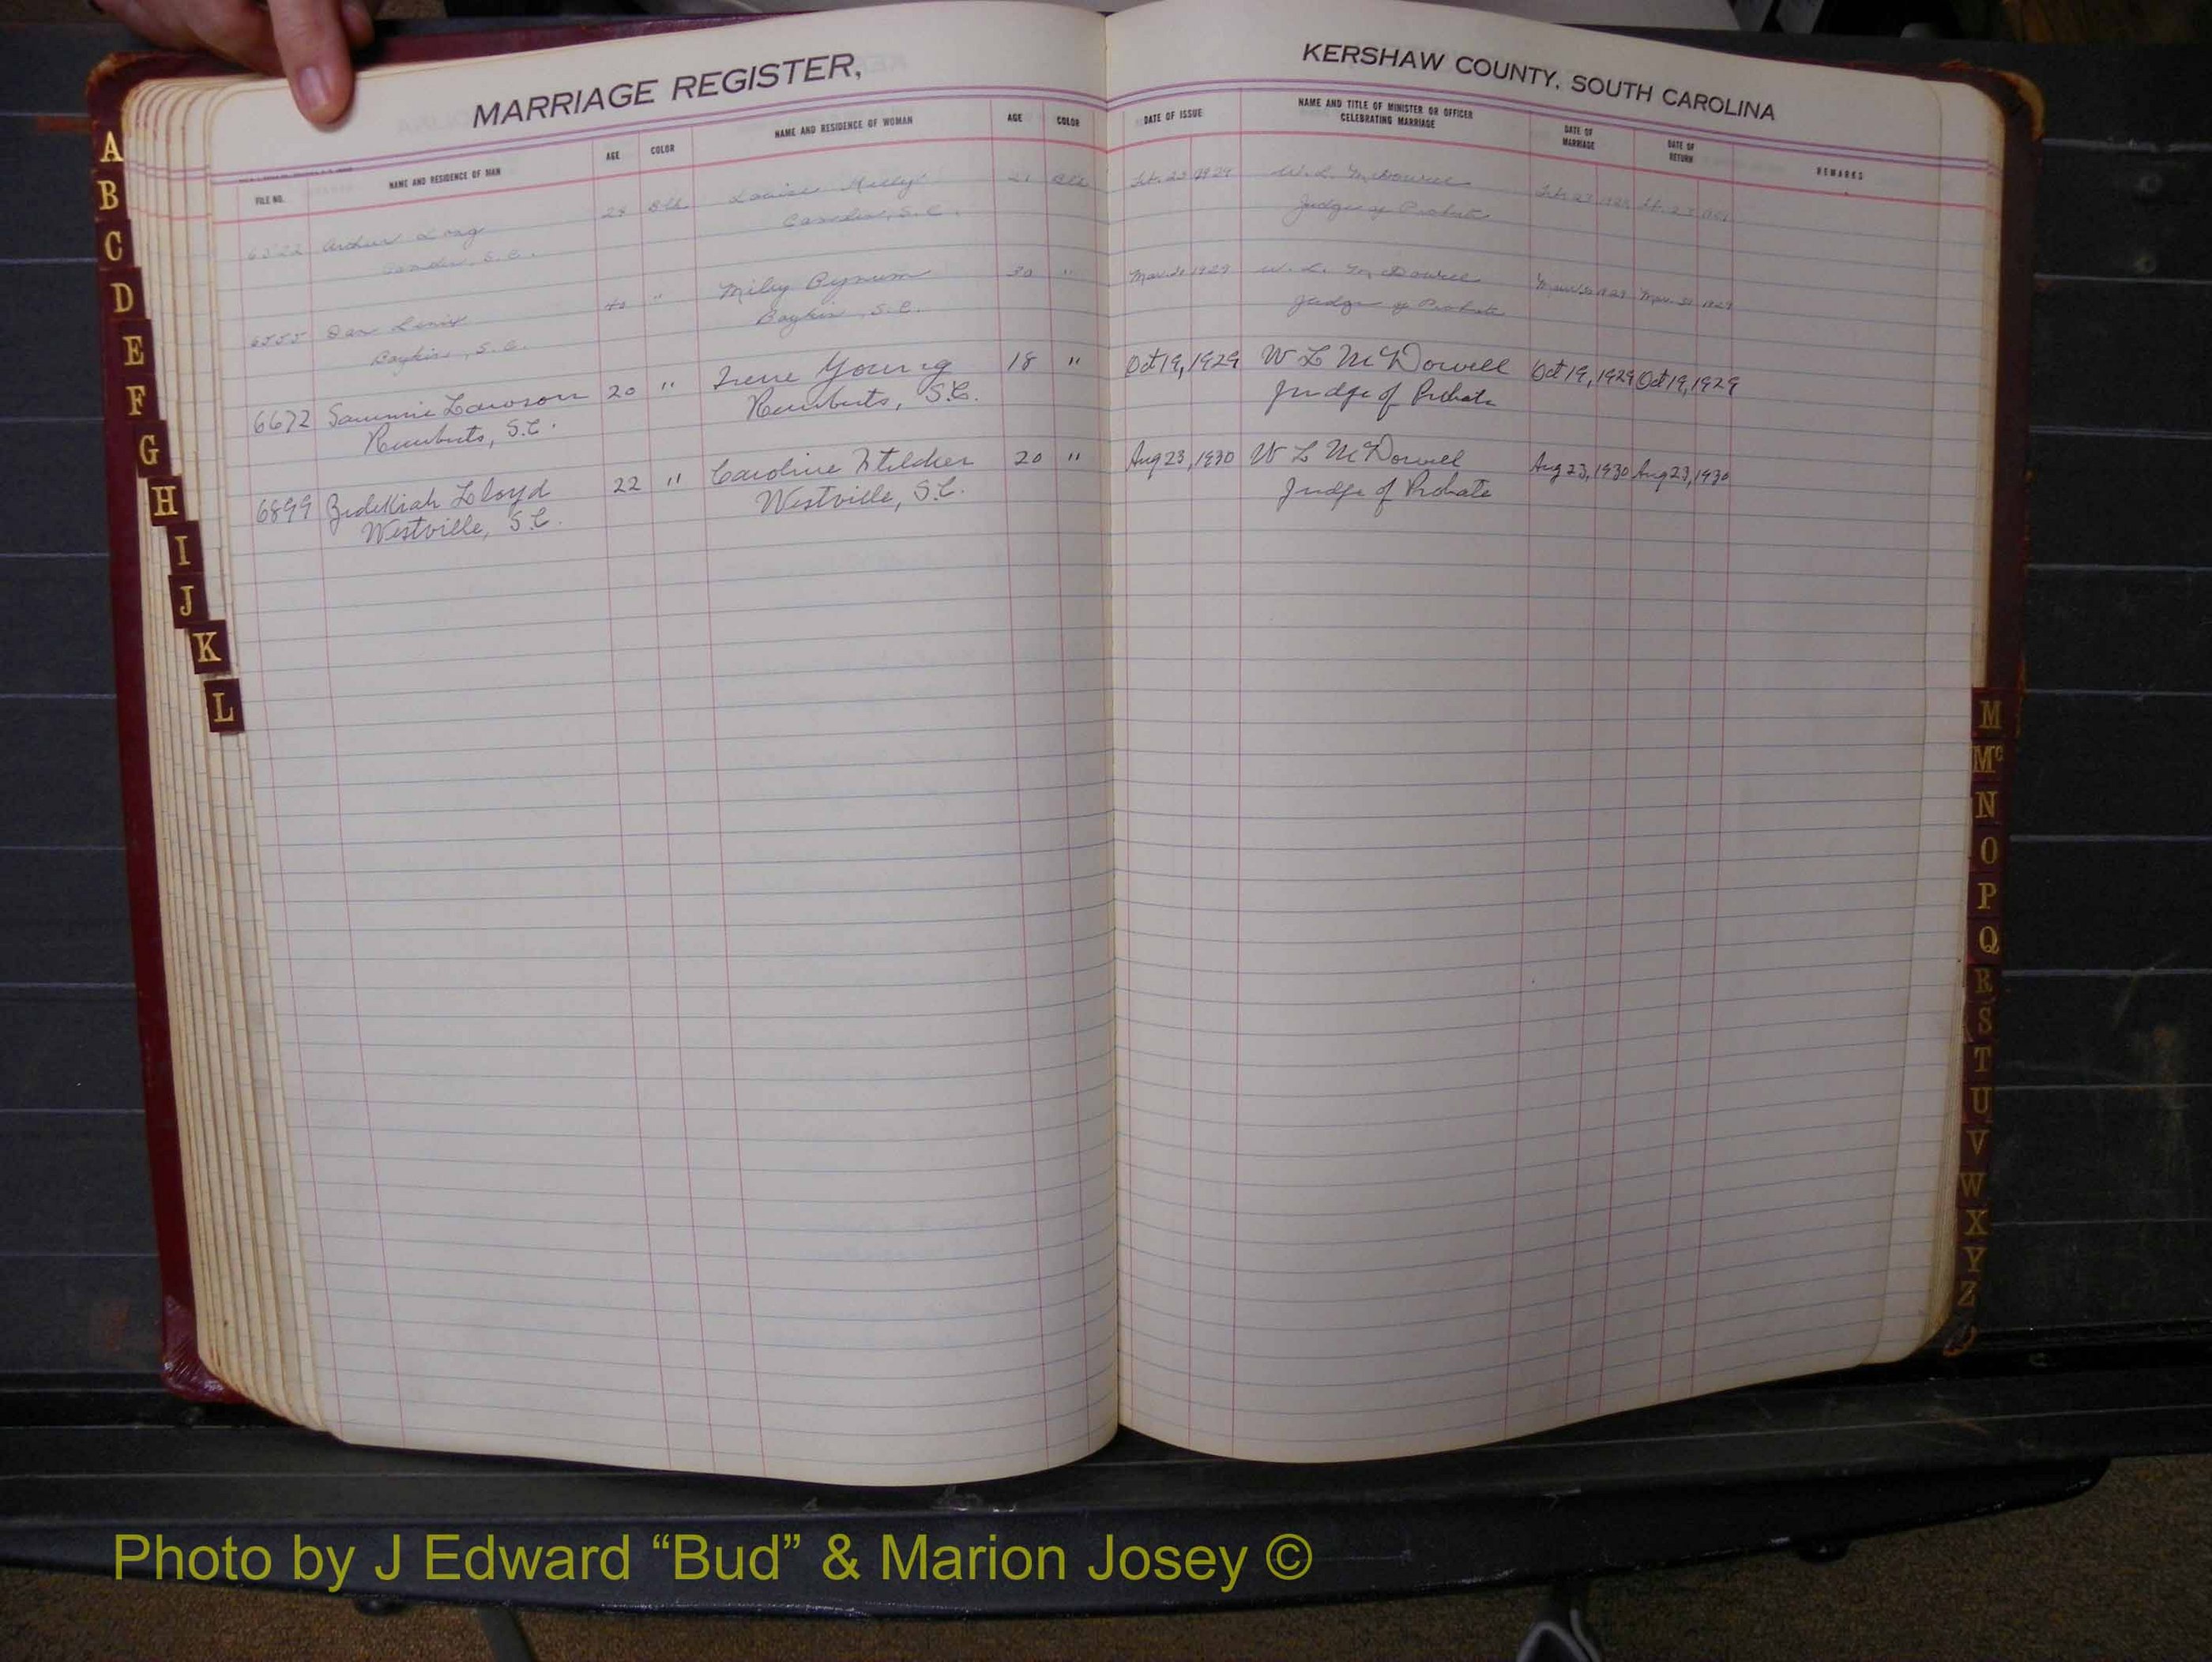 MARRIAGE REGISTER,
KERSHAW COUNTY, SOUTH CAROLINA
FILE NO.
NAME AND RESIDENCE OF MAN
AGE
COLOR
NAME AND RESIDENCE OF WOMAN
AGE
COLOR
DATE OF ISSUE
NAME AND TITLE OF MINISTER OR OFFICER
CELEBRATING MARRIAGE
DATE OF
MARRIAGE
DATE OF
RETURN
REMARKS
6522 Long 28 Blk Louise 21 Blk 23 1929 W. L. McDowell 1929
Camden, S.C. Camden, S.C. Judge of Probate
6555 Dan Lewis 40 " Milly Bynum 30 " Mar 30 1929 W. L. McDowell Mar 30 1929 Mar 30 1929
Boykin, S.C. Boykin, S.C. Judge of Probate
6672 Sammie Lawson 20 " Irene Young 18 " Oct 19, 1929 W L McDowell Oct 19, 1929 Oct 19, 1929
Remberts, S.C. Remberts, S.C. Judge of Probate
6899 Zedekiah Lloyd 22 " Caroline 20 " Aug 23, 1930 W L McDowell Aug 23, 1930 Aug 23, 1930
Westville, S.C. Westville, S.C. Judge of Probate
A
B
C
D
E
F
G
H
I
J
K
L
M
Mc
N
O
P
Q
R
S
T
U
V
W
X
Y
Z
Photo by J Edward “Bud” & Marion Josey ©